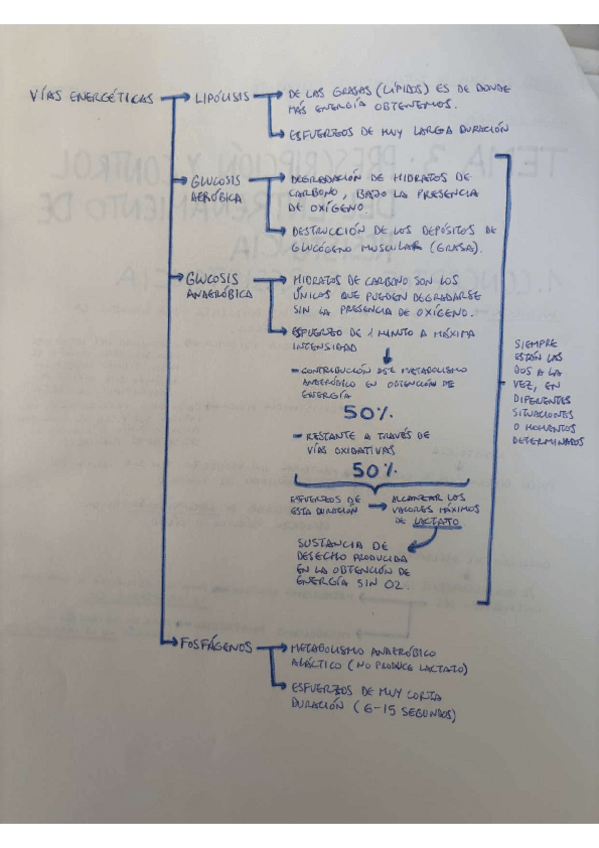 VÍAS ENERGÉTICAS
LIPÓLISIS
DE LAS GRASAS (LÍPIDOS) ES DE DONDE
MÁS ENERGÍA OBTENEMOS.
ESFUERZOS DE MUY LARGA DURACIÓN
GLUCOSIS
AERÓBICA
DEGRADACIÓN DE HIDRATOS DE
CARBONO, BAJO LA PRESENCIA
DE OXÍGENO
DESTRUCCIÓN DE LOS DEPÓSITOS DE
GLUCÓGENO MUSCULAR (GRASA).
GLUCOSIS
ANAERÓBICA
HIDRATOS DE CARBONO SON LOS
ÚNICOS QUE PUEDEN DEGRADARSE
SIN LA PRESENCIA DE OXÍGENO.
ESFUERZO DE 1 MINUTO A MÁXIMA
INTENSIDAD
- CONTRIBUCIÓN DEL METABOLISMO
ANAERÓBICO EN OBTENCIÓN DE
ENERGÍA
50%
- RESTANTE A TRAVÉS DE
VÍAS OXIDATIVAS
50%
ESFUERZOS DE
ESTA DURACIÓN
ALCANZAR LOS
VALORES MÁXIMOS
DE LACTATO
SUSTANCIA DE
DESECHO PRODUCIDA
EN LA OBTENCIÓN DE
ENERGÍA SIN O2.
SIEMPRE
ESTÁN LAS
DOS A LA
VEZ, EN
DIFERENTES
SITUACIONES
O MOMENTOS
DETERMINADOS
FOSFÁGENOS
METABOLISMO ANAERÓBICO
ALÁCTICO (NO PRODUCE LACTATO)
ESFUERZOS DE MUY CORTA
DURACIÓN (6-15 SEGUNDOS)